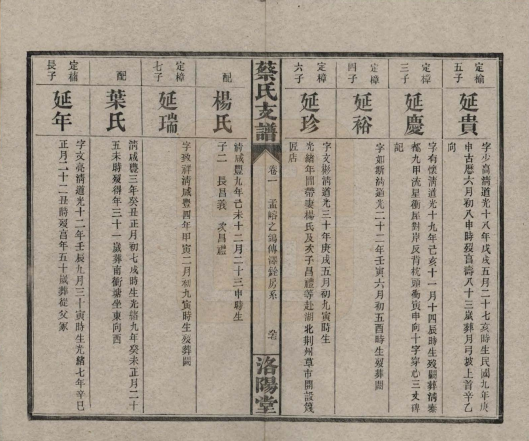 定榆
五子
延貴
字少良清道光十八年戊戌五月二十七亥時生民國九年庚
申古歷六月初八申時殁享壽八十三歲葬月弓坡上首辛乙
向
定樟
三子
延慶
字有懷清道光十九年己亥十一月十四辰時生殁關葬清泰
都九甲流星衝屋對岸反背杭頭喬寅申向十字穿心三丈碑
記
定樟
四子
延裕
字如斯清道光二十二年壬寅六月初五酉時生殁葬闕
定樟
六子
延珍
字文彩清道光三十年庚戌五月初九寅時生
光緒年間帶妻楊氏及次子昌禮等赴湖北荆州草市開設篾
匠店
蔡氏支譜
卷一
孟嵱之鵠傳譯銓房系
洛陽堂
配
楊氏
清咸豐九年己未十二月二十三申時生
子二 長昌義 次昌禮
定樟
七子
延瑞
字致祥清咸豐四年甲寅二月初九寅時生殁葬闕
配
葉氏
清咸豐三年癸丑正月初七戌時生光緒九年癸未正月二十
五未時殁得年三十一歲葬南衝塘坐東向西
定楠
長子
延年
字文亮清道光十二年壬辰九月三十寅時生光緒七年辛巳
正月二十二丑時殁享年五十歲葬從父冢